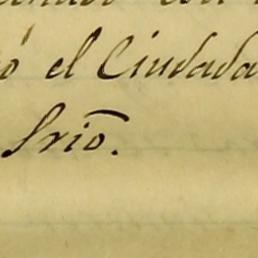 ó el Ciudada
Srio.